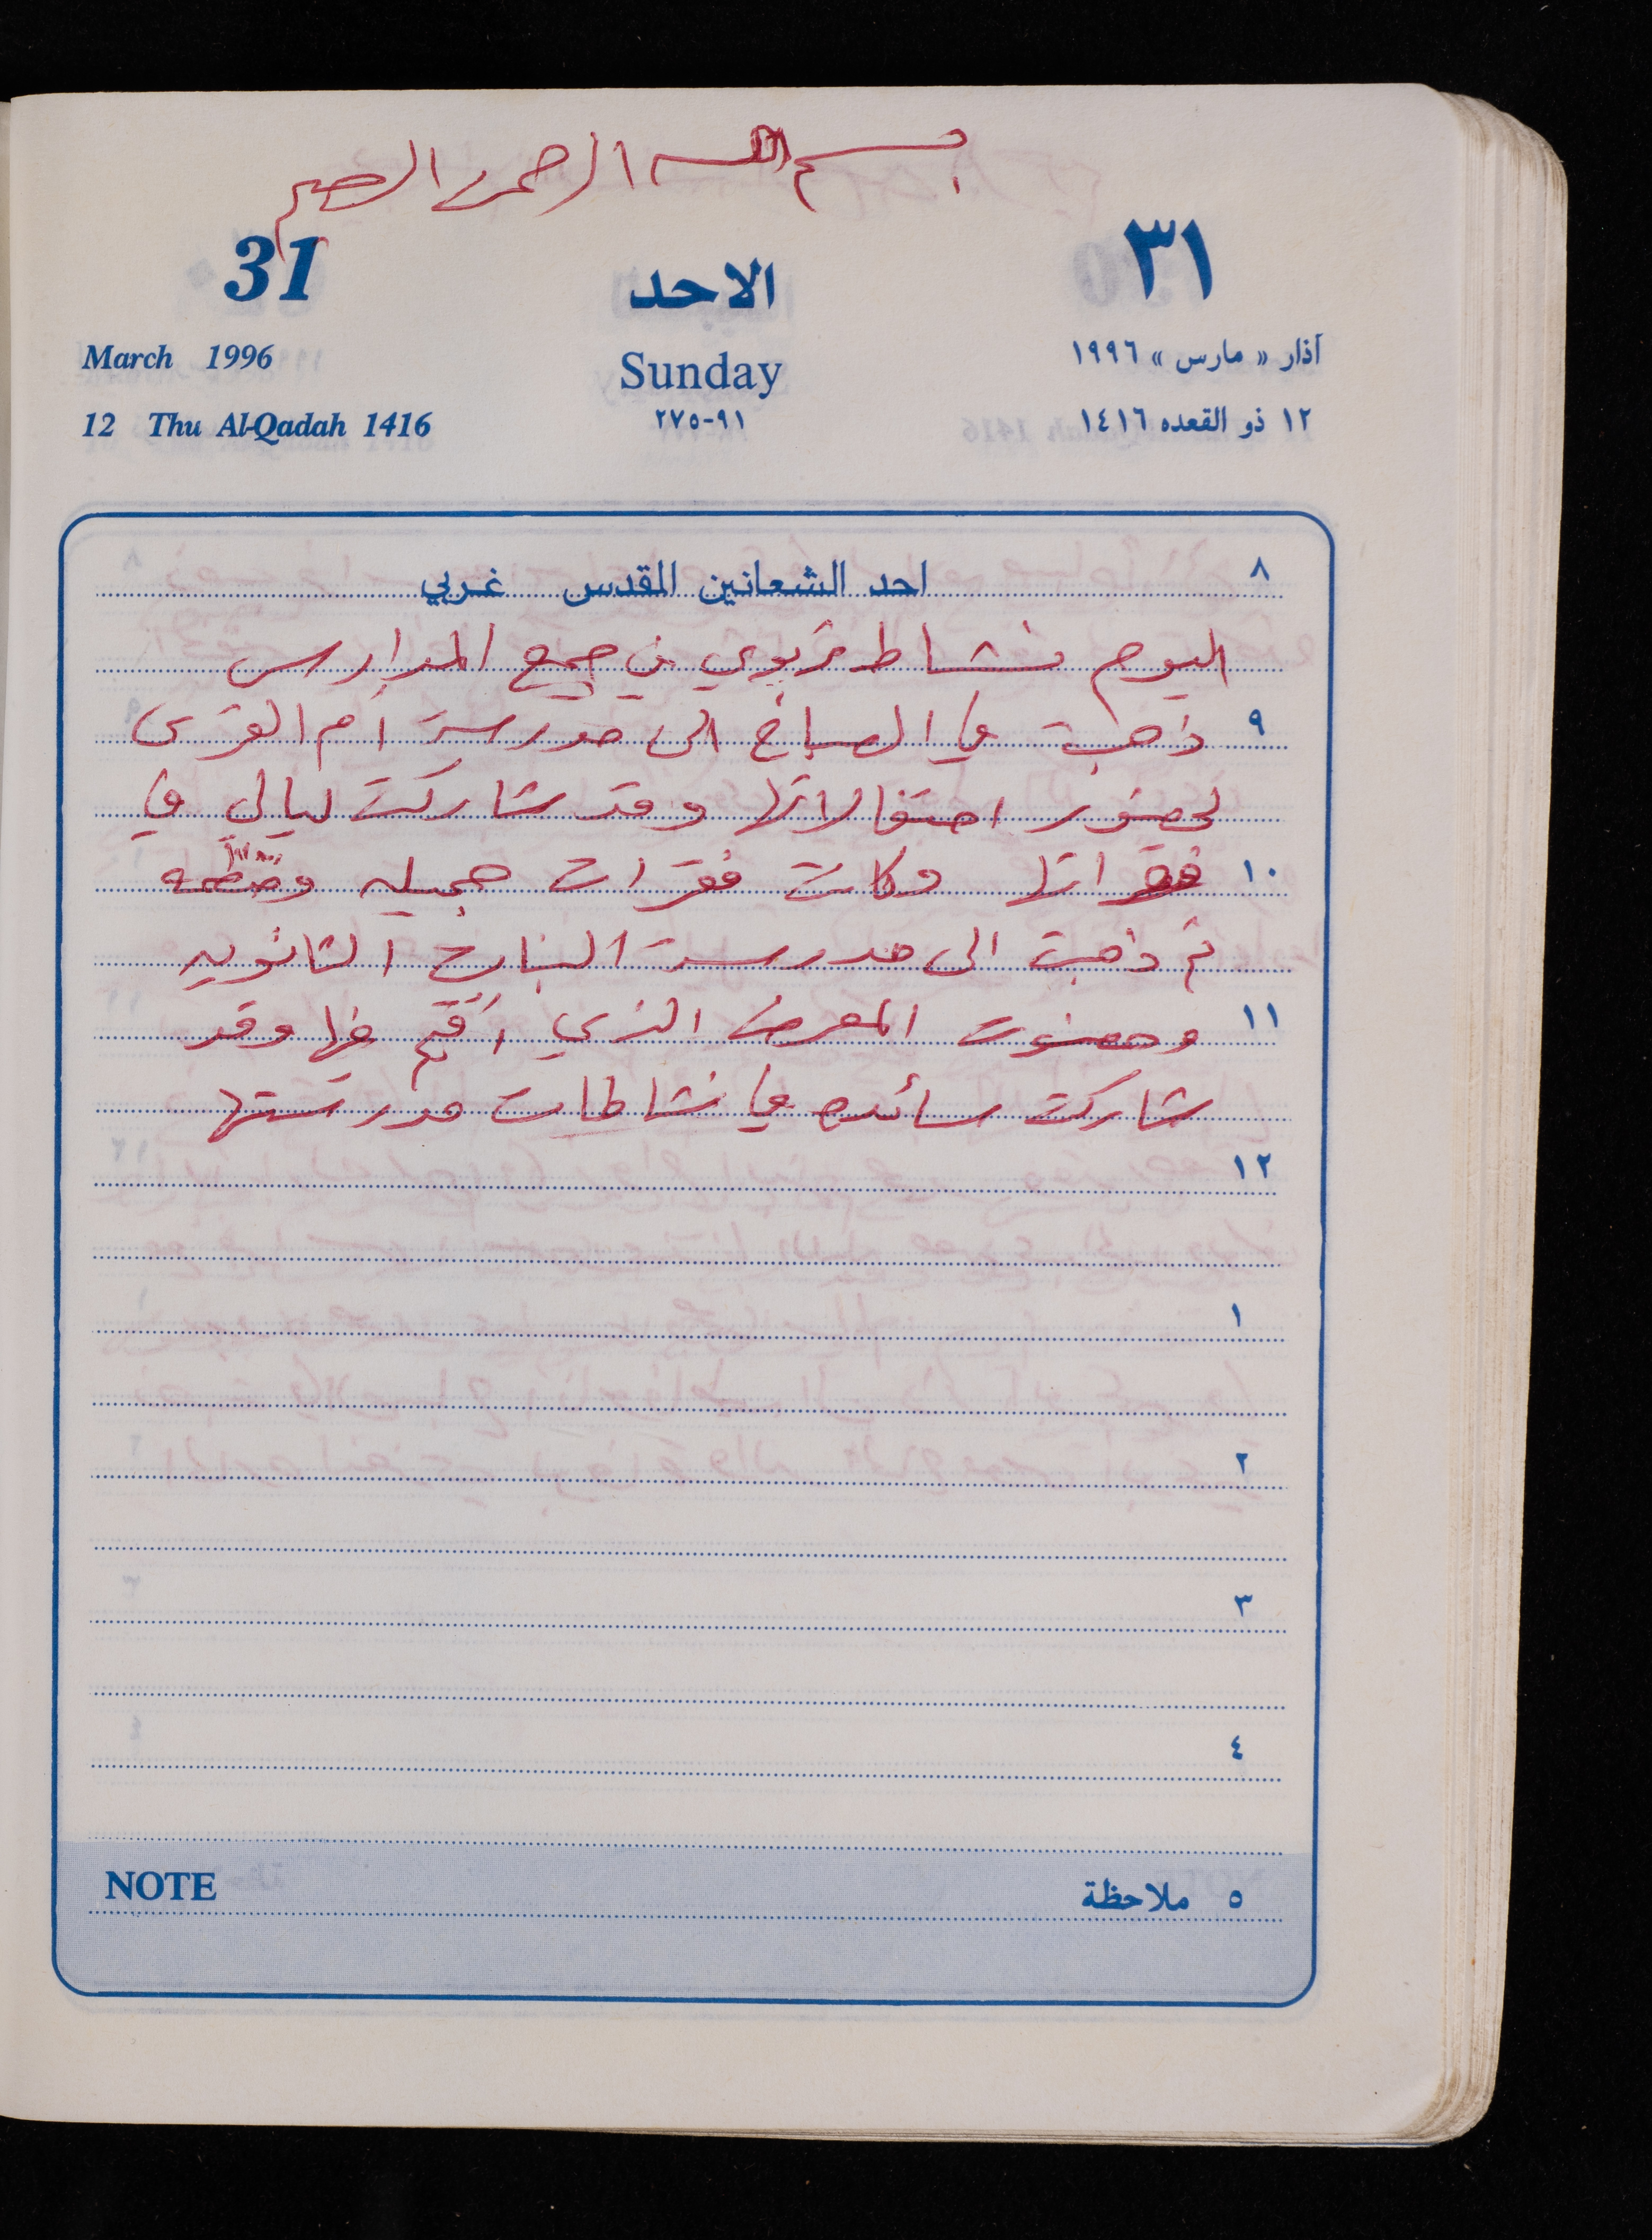 بسم الله الرحمن الرحيم
31 الاحد ٣١
March 1996 Sunday آذار « مارس » ١٩٩٦
12 Thu Al-Qadah 1416 ٩١-٢٧٥ ١٢ ذو القعده ١٤١٦
٨ احد الشعانين المقدس غربي
اليوم نشاط تربوي في جميع المدارس
٩ ذهبت في الصباح الى مدرسة أم القرى
لحضور احتفالاتها وقد شاركت ليالي في
١٠ فقراتها وكانت فقرات جميله ومنظمه
ثم ذهبت الى مدرسة الثانويه
١١ وحضرت المعرض الذي أقيم فيها وقد
شاركت سائده في نشاطات مدرستها
١٢
١
٢
٣
٤
NOTE ٥ ملاحظة